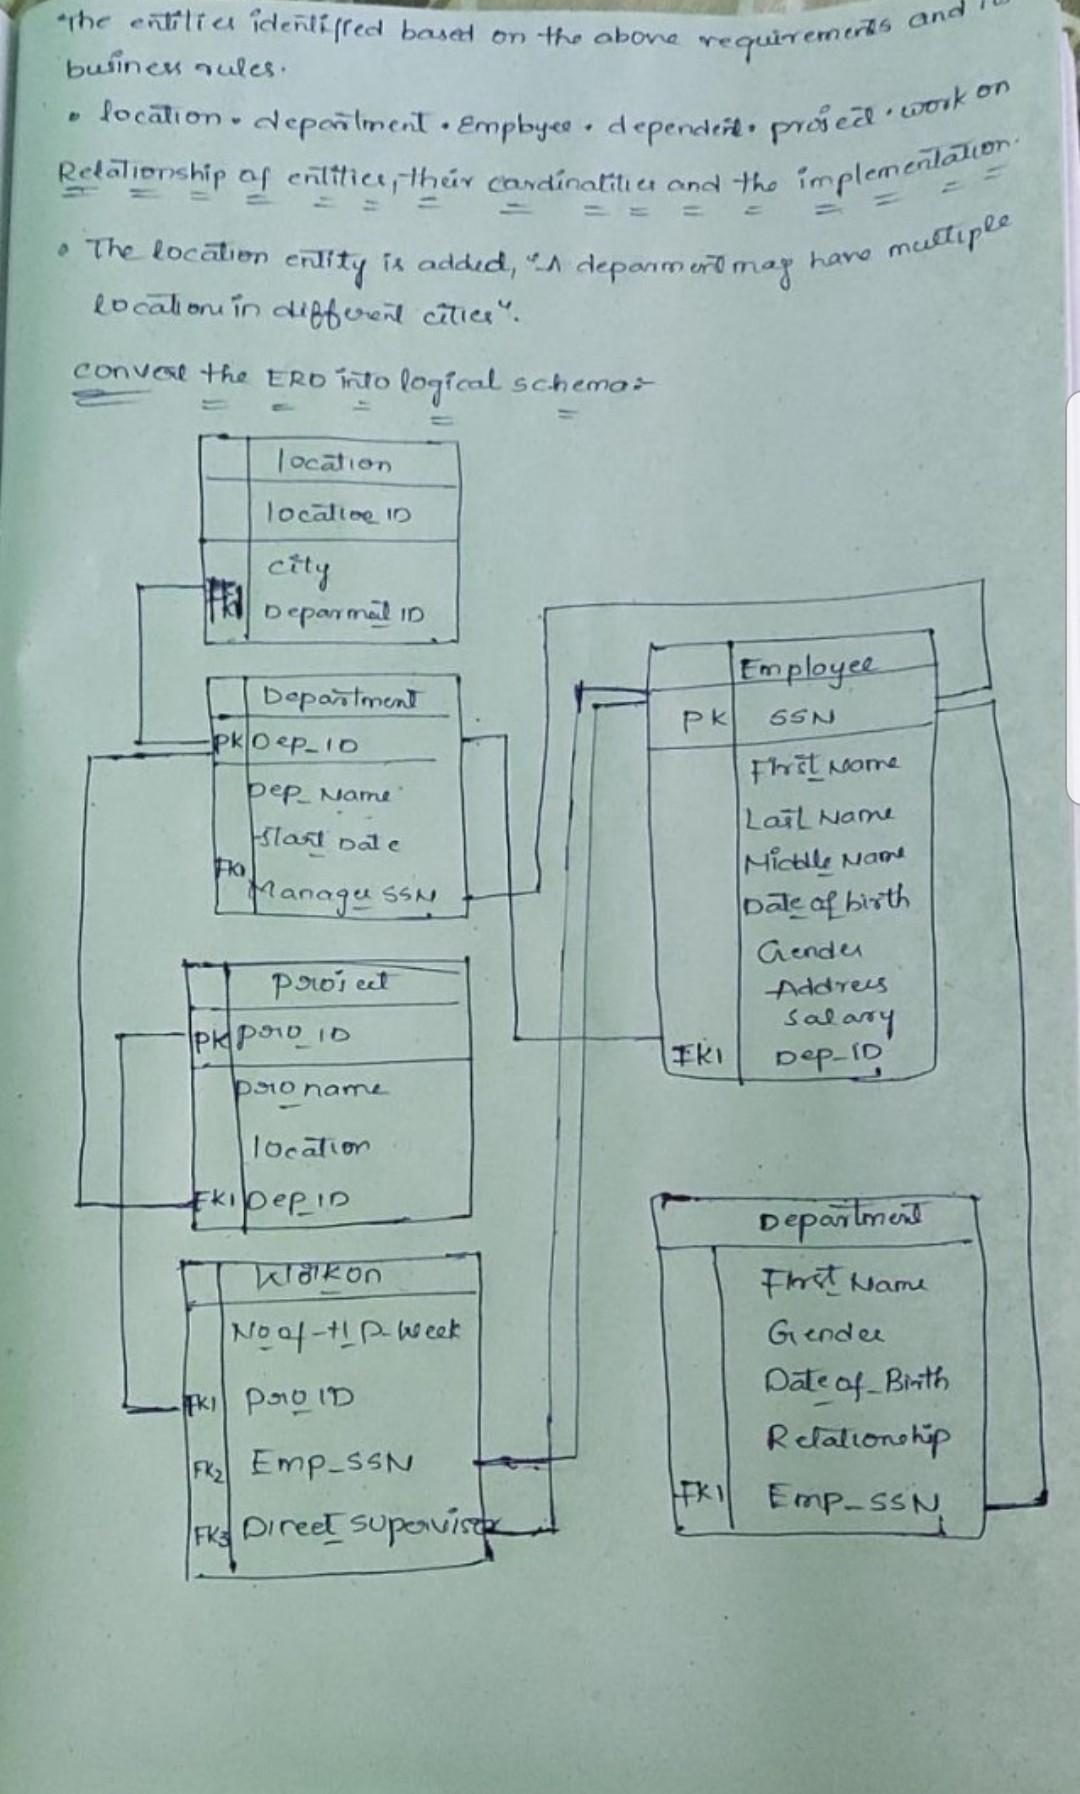 The entities identified based on the above requirements and
business rules.
• location • department • Employee • dependent • project • work on
Relationship of entities, their cardinalities and the implementation.
• The location entity is added, "A deparment may have multiple
location in different cities".
Convert the ERD into logical schema:-
location
location ID
city
FK1 Deparment ID
Department
PK Dep_ID
Dep_Name
Start Date
FK1
Manager SSN
Project
PK pro_ID
pro name
location
FK1 Dep_ID
Work on
No of-H P-Week
FK1 pro ID
FK2 Emp_SSN
FK3 Direct supervisor
Employee
PK SSN
First Name
Last Name
Middle Name
Date of birth
Gender
Address
Salary
FK1 Dep_ID
Department
First Name
Gender
Date of_Birth
Relationship
FK1 Emp_SSN